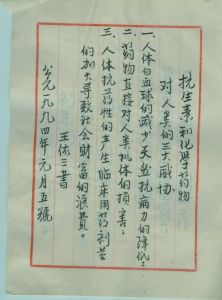 抗生素和化学药物
对人类的三大威协
一、人体白血球的减少天然抗病力的降低；
二、药物直接对人类机体的损害；
三、人体抗药性的产生临床用药剂量
的加大导致社会财富的浪费。
王休三書
公元一九九四年元月五號